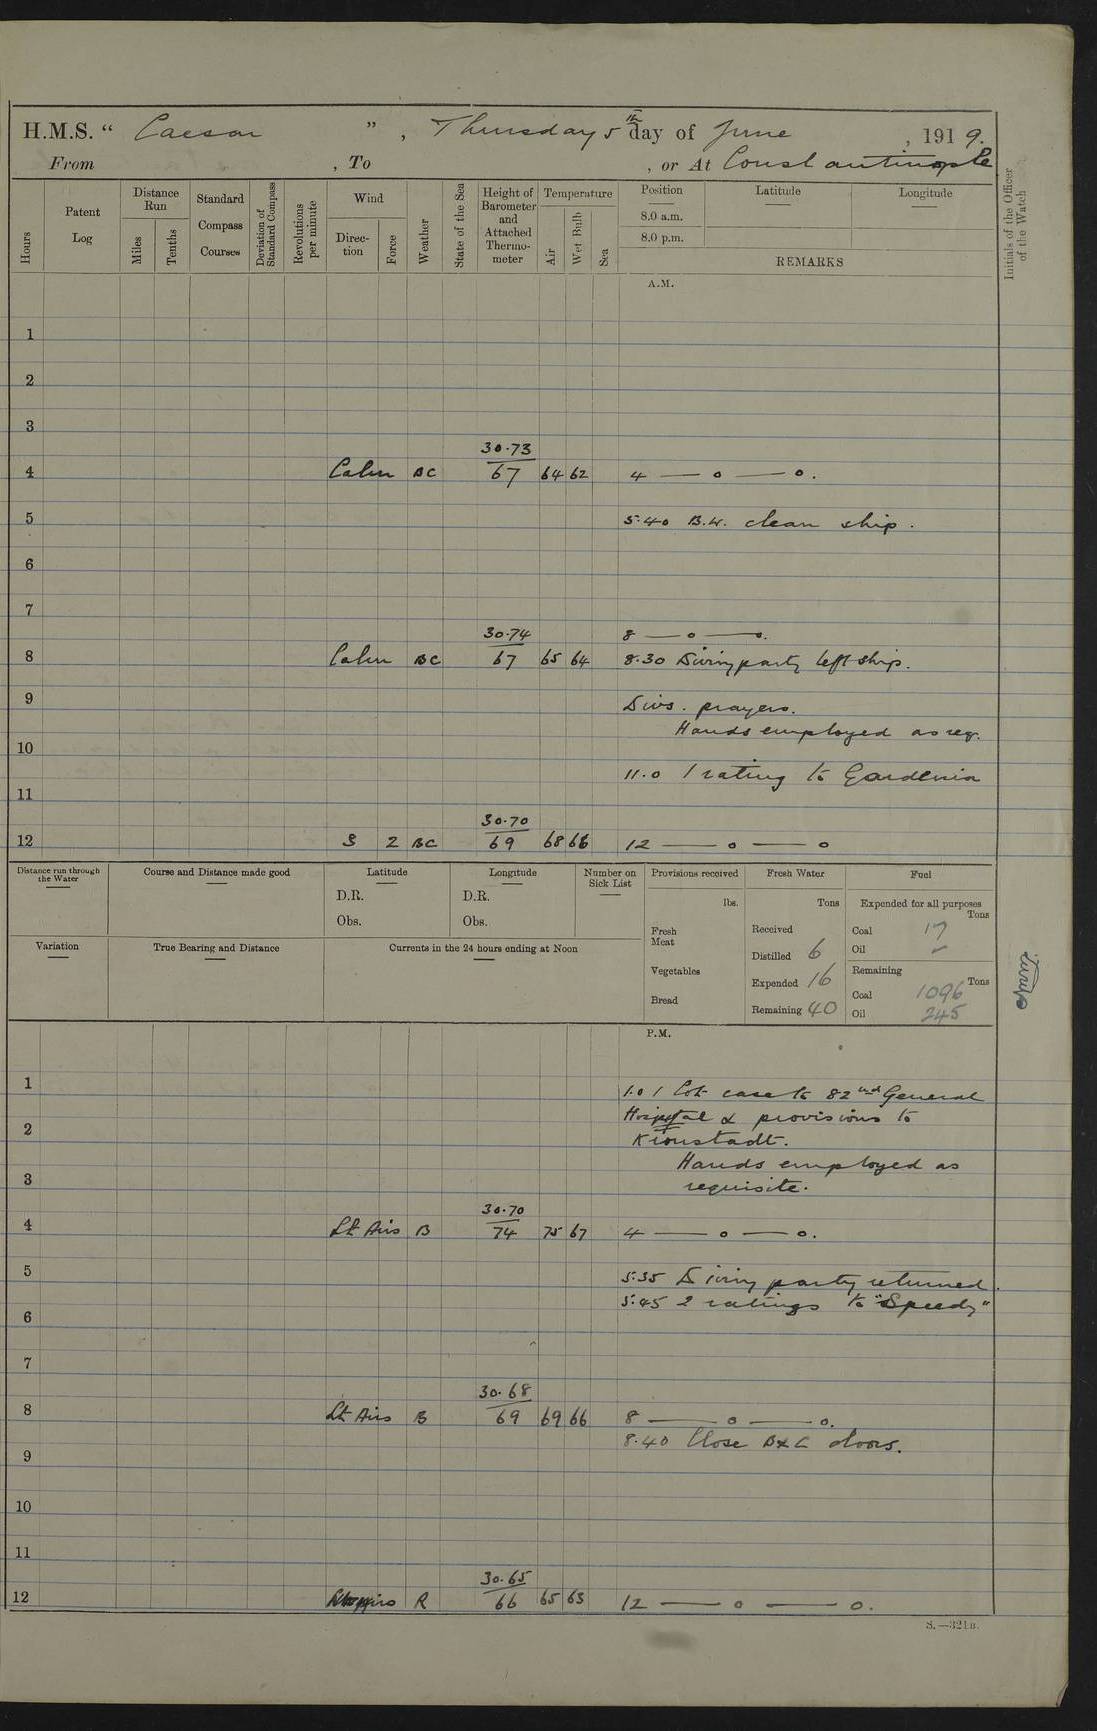 H.M.S. " Caesar " , Thursday 5th day of June , 1919.
From , To , or At Constantinople
Hours
Patent Log
Distance Run
Miles
Tenths
Standard Compass Courses
Deviation of Standard Compass
Revolutions per minute
Wind
Direction
Force
Weather
State of the Sea
Height of Barometer and Attached Thermometer
Temperature
Air
Wet Bulb
Sea
Position
Latitude
Longitude
8.0 a.m.
8.0 p.m.
REMARKS
Initials of the Officer of the Watch
A.M.
1
2
3
30.73
4 Calm BC 67 64 62 4 — o — o.
5 5.40 B.W. clean ship.
6
7
30.74 8 — o — o.
8 Calm BC 67 65 64 8.30 Diving party left ship.
9 Divs. prayers.
Hands employed as req.
10
11.0 1 rating to Gardenia
11
30.70
12 S 2 BC 69 68 66 12 — o — o
Distance run through the Water
Course and Distance made good
Latitude
D.R.
Obs.
Longitude
D.R.
Obs.
Number on Sick List
Provisions received
lbs.
Fresh Meat
Vegetables
Bread
Fresh Water
Tons
Received
Distilled 6
Expended 16
Remaining 40
Fuel
Expended for all purposes
Tons
Coal 17
Oil –
Remaining
Tons
Coal 1096
Oil 245
Variation
True Bearing and Distance
Currents in the 24 hours ending at Noon
P.M.
1 1.0 1 Cot case to 82nd General
2 Hospital & provisions to
Kronstadt.
Hands employed as
3 requisite.
30.70
4 Lt Airs B 74 75 67 4 — o — o.
5 5.35 Diving party returned.
5.45 2 ratings to "Speedy"
6
7
30.68
8 Lt Airs B 69 69 66 8 — o — o.
8.40 Close B & C doors.
9
10
11
30.65
12 R 66 65 63 12 — o — o.
S.—321B.